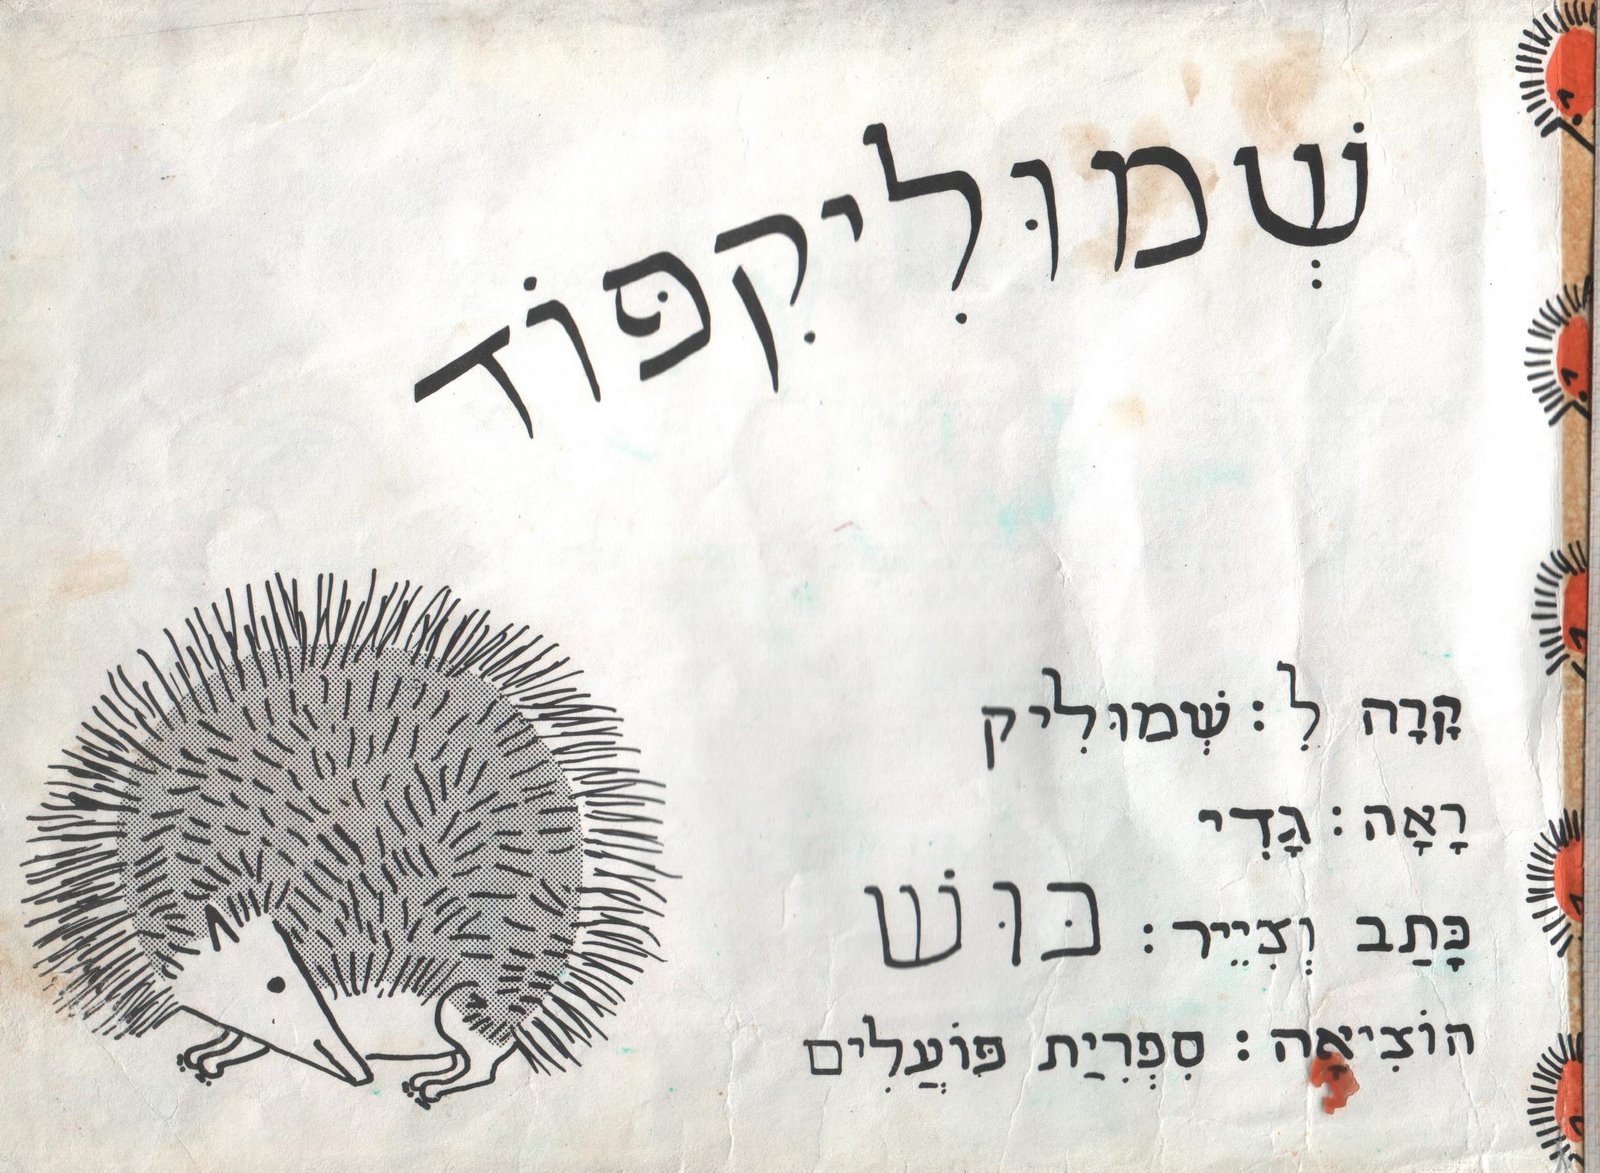 שְׁמוּלִיקִפּוֹד
קָרָה לִ: שְׁמוּלִיק
רָאָה: גָּדִי
כָּתַב וְצִיֵּיר: כּוּשׁ
הוֹצִיאָה: סִפְרִיַת פּוֹעֲלִים